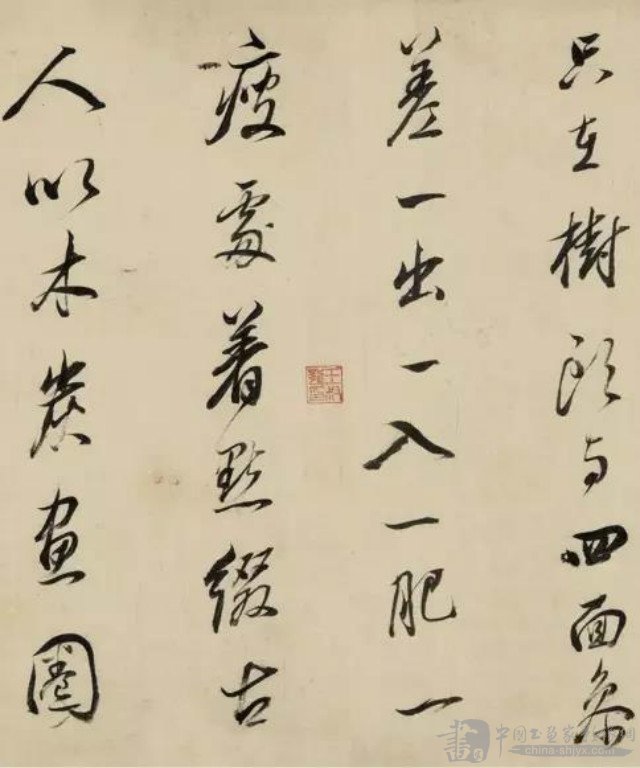 只在樹頭与四面參
差一出一入一肥一
瘦處着點綴古
人以木炭畫圈
china-shjyx.com